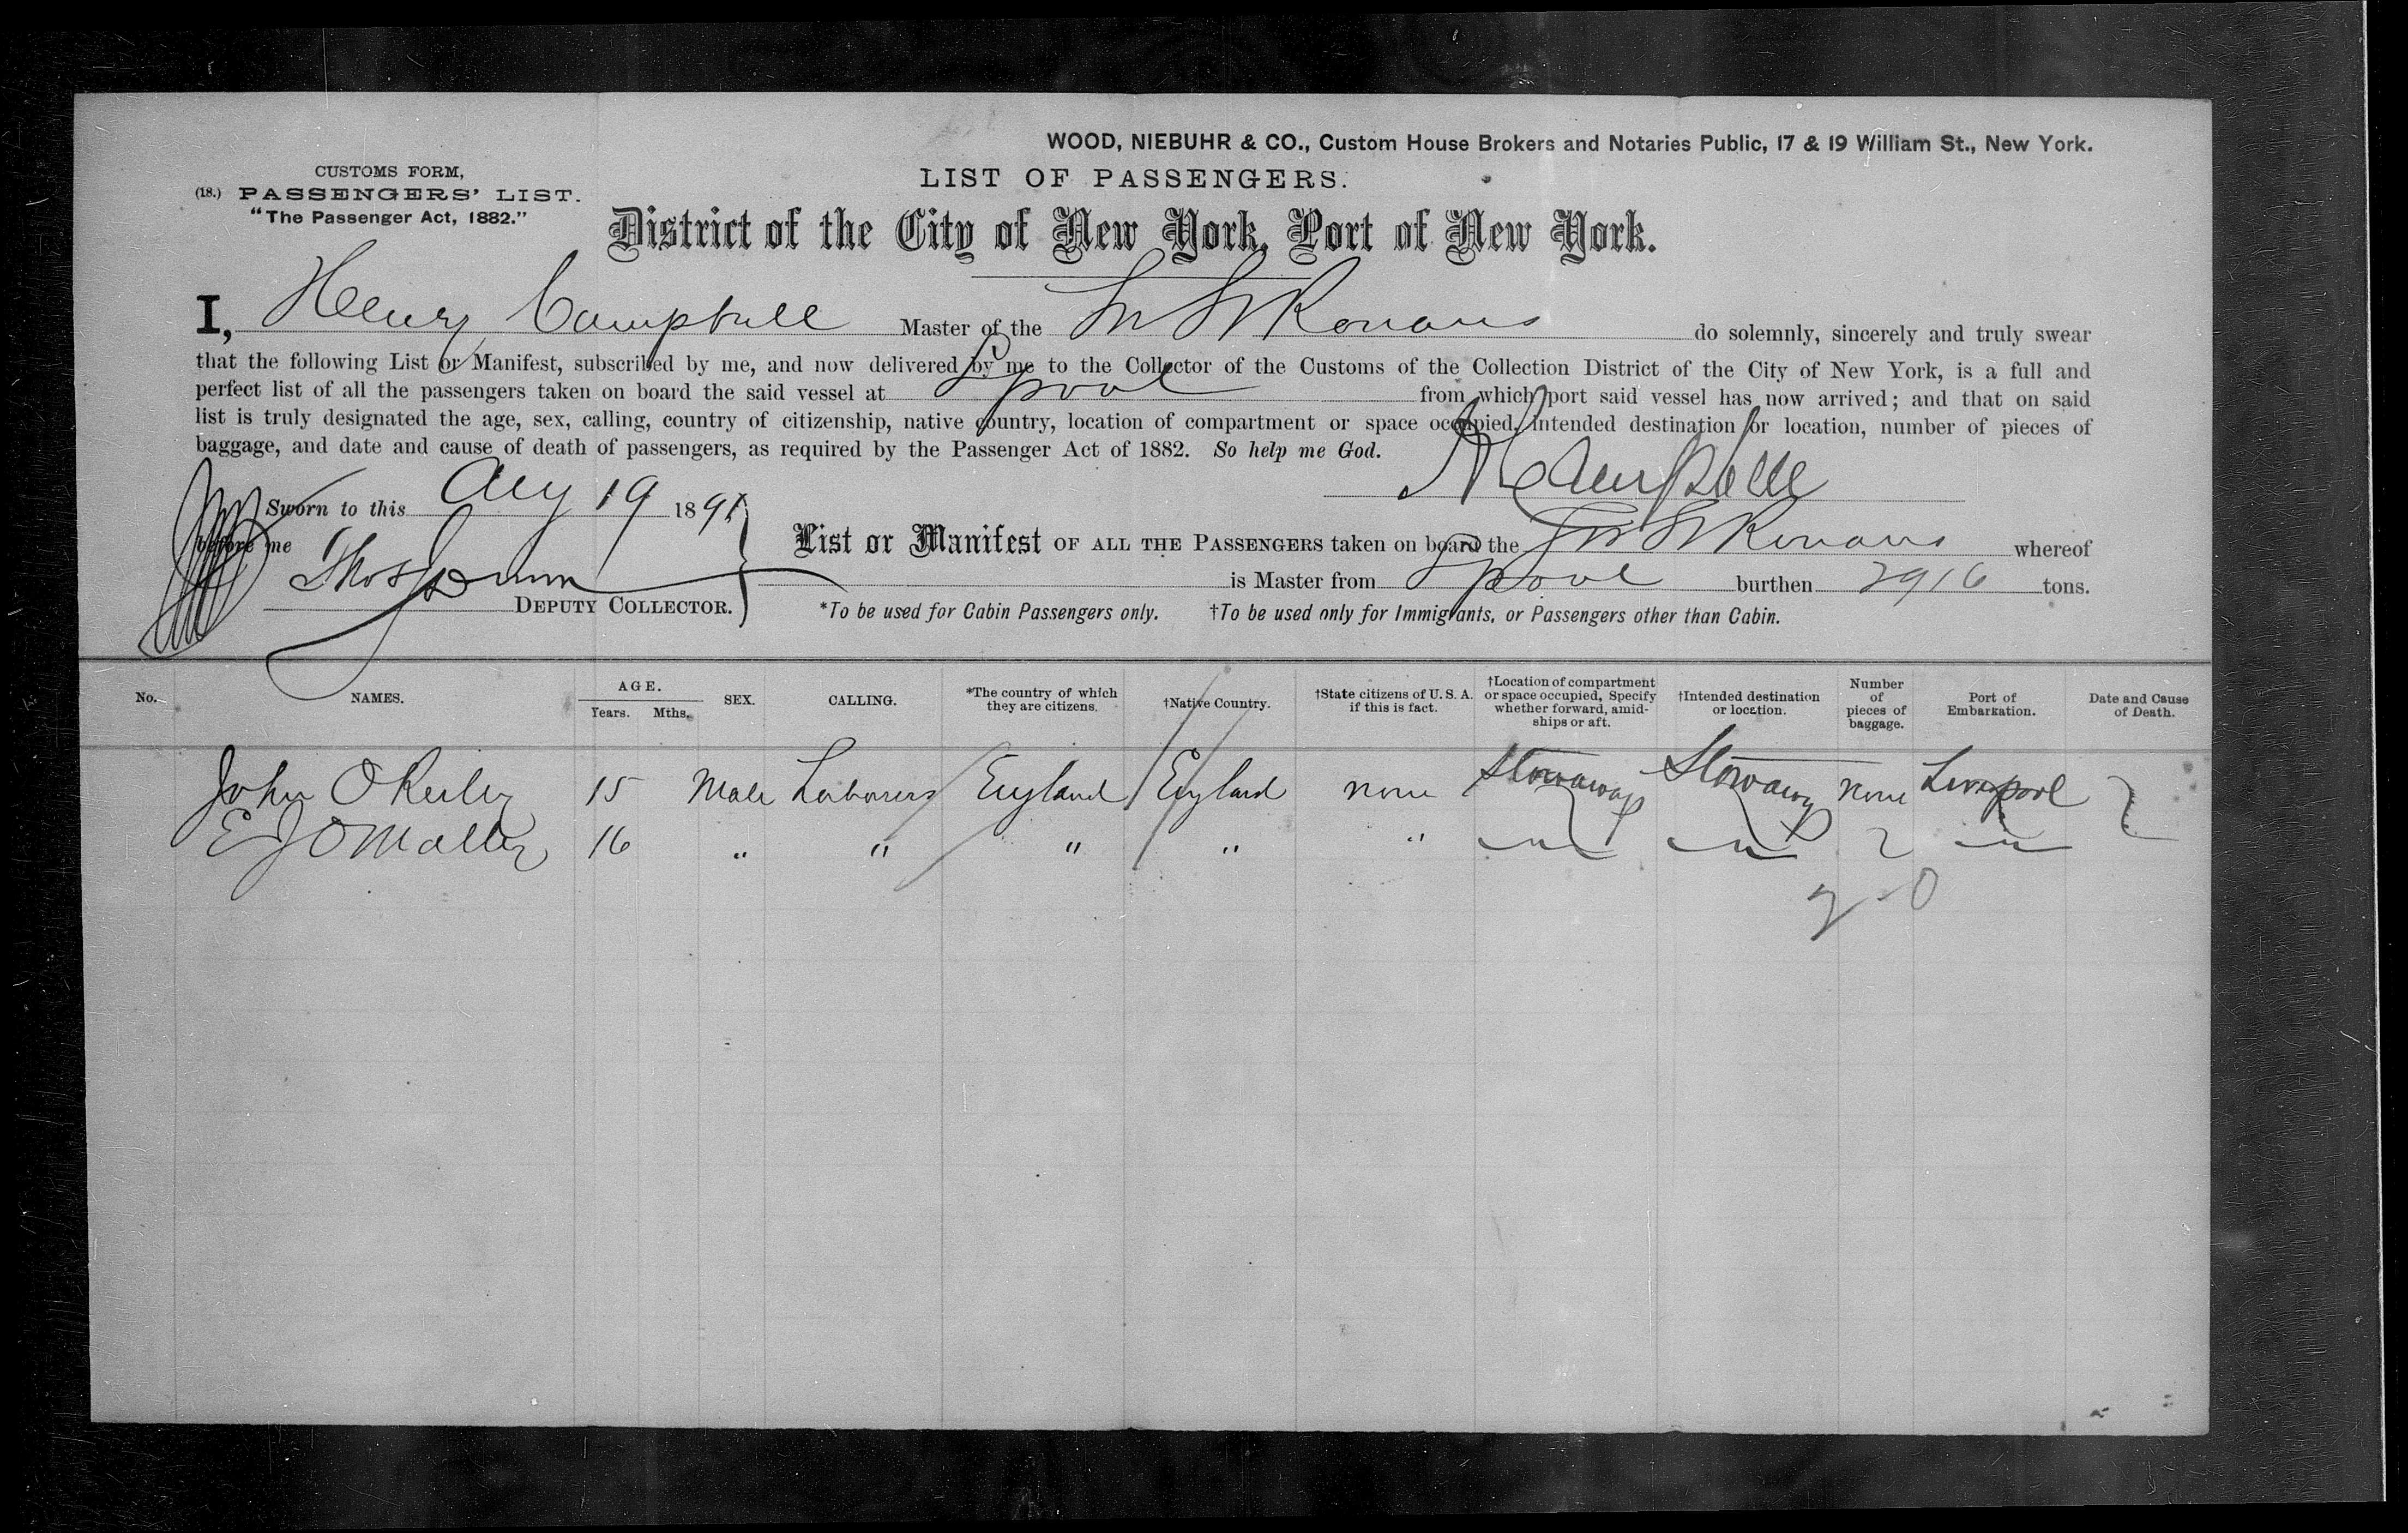 WOOD, NIEBUHR & CO., Custom House Brokers and Notaries Public, 17 & 19 William St., New York.
CUSTOMS FORM,
(18.) PASSENGERS' LIST.
"The Passenger Act, 1882."
LIST OF PASSENGERS.
District of the City of New York, Port of New York.
I, Henry Campbell Master of the St Ronans do solemnly, sincerely and truly swear
that the following List or Manifest, subscribed by me, and now delivered by me to the Collector of the Customs of the Collection District of the City of New York, is a full and
perfect list of all the passengers taken on board the said vessel at Lpool from which port said vessel has now arrived; and that on said
list is truly designated the age, sex, calling, country of citizenship, native country, location of compartment or space occupied, intended destination or location, number of pieces of
baggage, and date and cause of death of passengers, as required by the Passenger Act of 1882. So help me God.
H Campbell
Sworn to this Aug 19 1891
before me Thos Dunn
DEPUTY COLLECTOR.
List or Manifest OF ALL THE PASSENGERS taken on board the St Ronans whereof
is Master from Lpool burthen 2916 tons.
*To be used for Cabin Passengers only. †To be used only for Immigrants, or Passengers other than Cabin.
No. NAMES. AGE. Years. Mths. SEX. CALLING. *The country of which they are citizens. †Native Country. †State citizens of U.S.A. if this is fact. †Location of compartment or space occupied, Specify whether forward, amidships or aft. †Intended destination or location. Number of pieces of baggage. Port of Embarkation. Date and Cause of Death.
John O'Reiley 15 Male Laborers England England none Stowaway Stowaway none Liverpool
E J O'Malley 16 " " " " " " " "
2-0